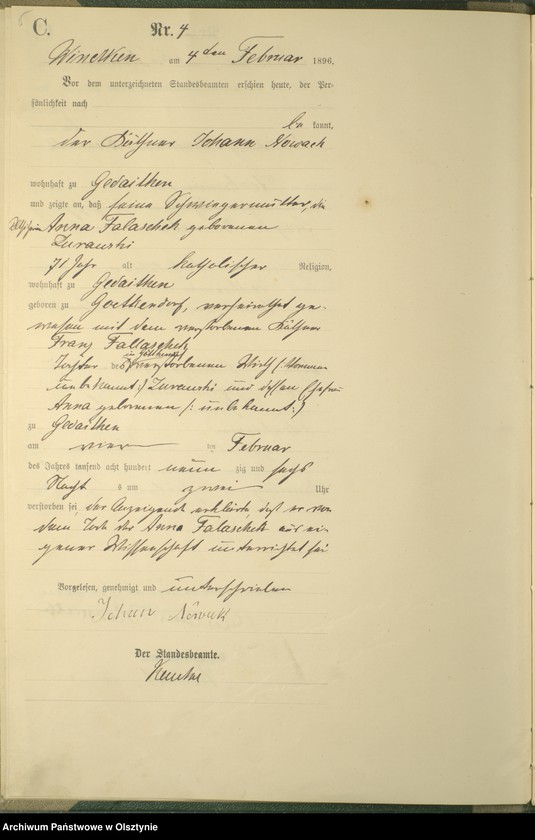 C.
Nr. 4
am 4ten Februar 1896.
Vor dem unterzeichneten Standesbeamten erschien heute, der Per-
sönlichkeit nach
be kannt,
der Käthner Johann Nowack
wohnhaft zu Gedaithen
und zeigte an, daß seine Schwiegermutter, die
Anna Falaschek geborenen
Zurawski
71 Jahr alt katholischer Religion,
wohnhaft zu Gedaithen
geboren zu verheirathet ge-
wesen mit dem verstorbenen Käthner
Franz Fallaschek
Tochter des verstorbenen Wirth (: Vorname
unbekannt :) Zurawski und dessen Ehefrau
Anna geborenen (: unbekannt :)
zu Gedaithen
am vier ten Februar
des Jahres tausend acht hundert neun zig und sechs
Nacht s um zwei Uhr
verstorben sei, der Anzeigende erklärte, daß er von
dem Tode der Anna Falaschek aus ei-
gener Wissenschaft unterrichtet sei
Vorgelesen, genehmigt und unterschrieben
Johann Nowack
Der Standesbeamte.
Archiwum Państwowe w Olsztynie